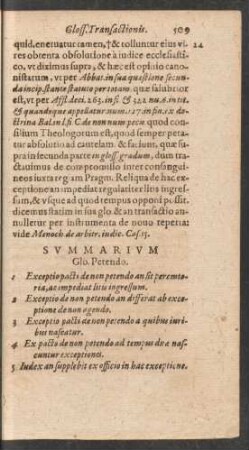 Gloss. Transactionis. 509
quid, eneruatur tamen, † & tolluntur eius vi- 24
res obtenta absolutione à iudice ecclesiasti-
co, vt diximus supra, & hæc est opinio cano-
nistarum, vt per Abbat. in sua questione secun-
da incip. stante statuto per totam. quæ salubrior
est, vt per Afflict. deci. 265. in fi. & 322. nu. 8. in fi.
& quandoque appellatur num. 127. in fin. ex do-
ctrina Bal. in l. fi. C. de non num. pecu. quod con-
silium Theologorum est, quod semper peta-
tur absolutio ad cautelam. & facium, quæ su-
pra in secunda parte in gloss. gradum, dum tra-
ctauimus de compromisso inter consangui-
neos iuxta regiam Pragm. Reliqua de hac ex-
ceptione an impediat regulariter litis ingres-
sum, & vsque ad quod tempus opponi possit.
dicemus statim in sua glo & an transactio an-
nulletur per instrumenta de nouo reperta:
vide Menoch de arbitr. iudic. Cas. 15.
SVMMARIVM
Glo. Petendo.
1 Exceptio pacti de non petendo an sit perempto-
ria, ac impediat litis ingressum.
2 Exceptio de non petendo an differat ab exce-
ptione de non agendo.
3 Exceptio pacti de non petendo a quibus iuri-
bus nascatur.
4 Ex pacto de non petendo ad tempus duæ nas-
cuntur exceptiones.
5 Iudex an supplebit ex officio in hac exceptione.